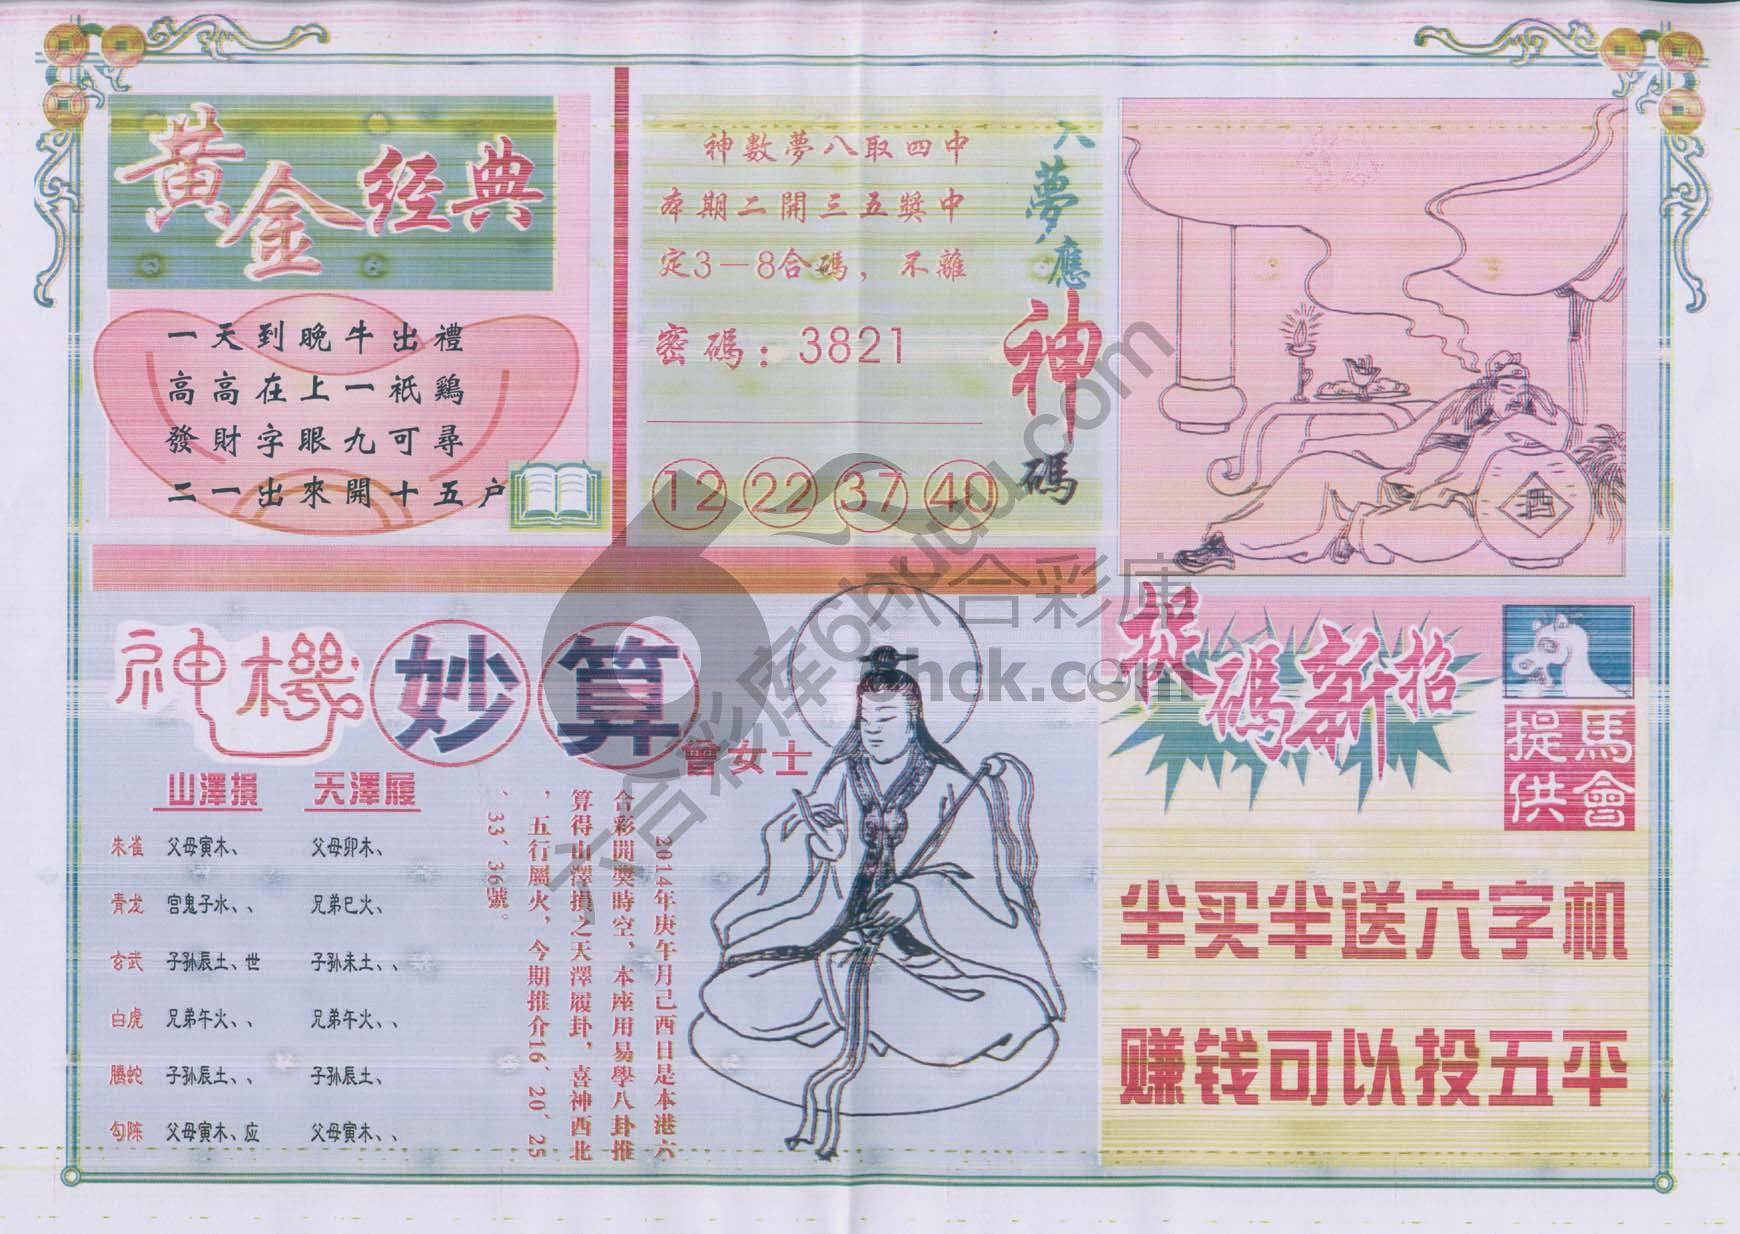 黃金經典
一天到晚牛出禮
高高在上一祇鷄
發財字眼九可尋
二一出來開十五户
入夢應神碼
神數夢八取四中
本期二開三五獎中
定3－8合碼，不離
密碼：3821
12 22 37 40
酒
神機妙算
曾女士
山澤損 天澤履
朱雀 父母寅木、 父母卯木、
青龙 宫鬼子水、、 兄弟巳火、
玄武 子孙辰土、世 子孙未土、、
白虎 兄弟午火、、 兄弟午火、、
腾蛇 子孙辰土、、 子孙辰土、
勾陈 父母寅木、应 父母寅木、、
2014年庚午月己酉日是本港六
合彩開獎時空，本座用易學八卦推
算得山澤損之天澤履卦，喜神西北
，五行屬火，今期推介16、20、25
、33、36號。
捉碼新招
馬會提供
半买半送六字机
赚钱可以投五平
六合彩库6huuu.com
六合彩库